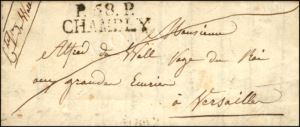 P.58.P.
CHAMBLY
Monsieur
Alfred de Wall Page du Roi
aux grandes Ecuries
à Versailles